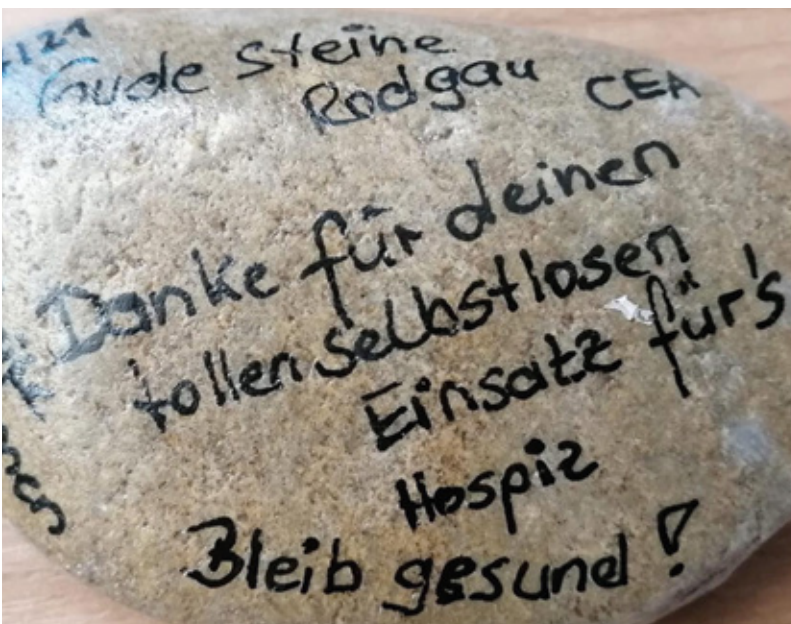 Gude Steine
Rodgau CEA
Danke für deinen
tollen selbstlosen
Einsatz für's
Hospiz
Bleib gesund!